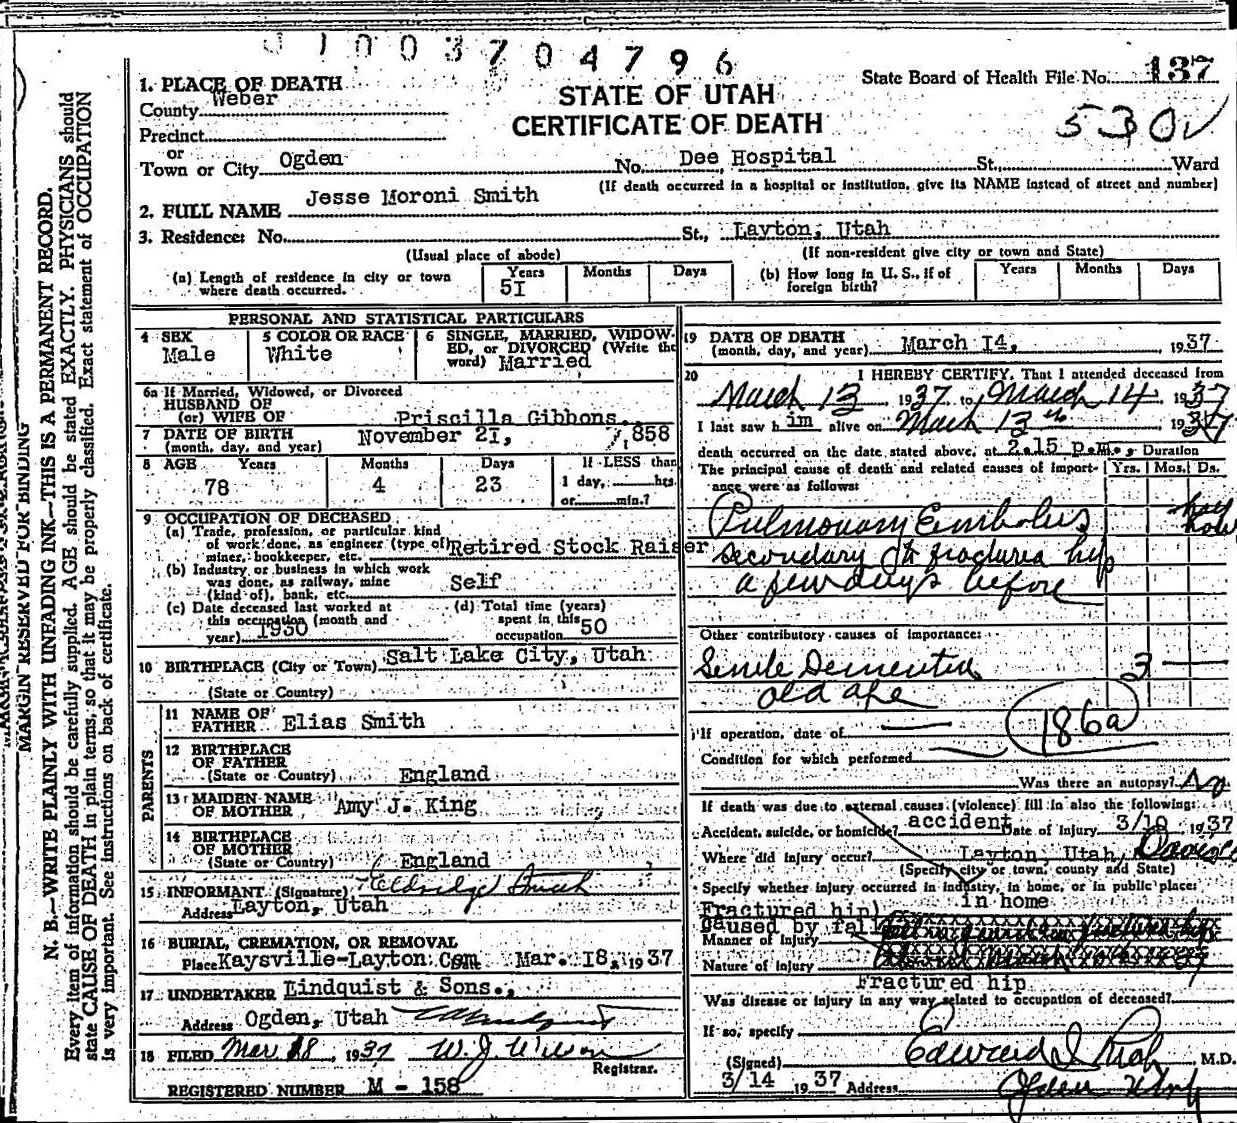 1003704796
State Board of Health File No. 137
530
STATE OF UTAH
CERTIFICATE OF DEATH
1. PLACE OF DEATH
County Weber
Precinct
or
Town or City Ogden No. Dee Hospital St., Ward
(If death occurred in a hospital or institution, give its NAME instead of street and number)
2. FULL NAME Jesse Moroni Smith
3. Residence: No. St., Layton, Utah
(Usual place of abode) (If non-resident give city or town and State)
(a) Length of residence in city or town where death occurred. Years 51 Months Days
(b) How long in U. S., if of foreign birth? Years Months Days
PERSONAL AND STATISTICAL PARTICULARS
4 SEX Male
5 COLOR OR RACE White
6 SINGLE, MARRIED, WIDOWED, or DIVORCED (Write the word) Married
6a If Married, Widowed, or Divorced
HUSBAND OF
(or) WIFE OF Priscilla Gibbons.
7 DATE OF BIRTH November 21, 1858
(month, day, and year)
8 AGE Years 78 Months 4 Days 23 If LESS than 1 day, hrs. or min.?
9 OCCUPATION OF DECEASED
(a) Trade, profession, or particular kind
of work done, as engineer (type of) Retired Stock Raiser
miner, bookkeeper, etc.
(b) Industry or business in which work
was done, as railway, mine Self
(kind of), bank, etc.
(c) Date deceased last worked at
this occupation (month and
year) 1930
(d) Total time (years)
spent in this
occupation 50
10 BIRTHPLACE (City or Town) Salt Lake City, Utah
(State or Country)
PARENTS
11 NAME OF
FATHER Elias Smith
12 BIRTHPLACE
OF FATHER
(State or Country) England
13 MAIDEN NAME
OF MOTHER Amy J. King
14 BIRTHPLACE
OF MOTHER
(State or Country) England
15 INFORMANT (Signature) Eldridge Smith
Address Layton, Utah
16 BURIAL, CREMATION, OR REMOVAL
Place Kaysville-Layton Cem Mar. 18, 1937
17 UNDERTAKER Lindquist & Sons.,
Address Ogden, Utah
18 FILED Mar 18, 1937 W. J. Wilson
Registrar.
REGISTERED NUMBER M - 158
19 DATE OF DEATH
(month, day, and year) March 14, 1937
20 I HEREBY CERTIFY, That I attended deceased from
March 13 1937 to March 14 1937
I last saw him alive on March 13th 1937
death occurred on the date stated above, at 2.15 p.m. Duration
The principal cause of death and related causes of importance were as follows: Yrs. Mos. Ds.
Pulmonary Embolus half hour
secondary to fractured hip
a few days before
Other contributory causes of importance:
Senile Dementia 3
old age
186a
If operation, date of
Condition for which performed
Was there an autopsy? No
If death was due to external causes (violence) fill in also the following:
Accident, suicide, or homicide? accident Date of Injury 3/10 1937
Where did injury occur? Layton, Utah, Davis Co
(Specify city or town, county and State)
Specify whether injury occurred in industry, in home, or in public place:
in home
Fractured hip)
caused by fall
Manner of Injury
Nature of Injury
Fractured hip
Was disease or injury in any way related to occupation of deceased?
If so, specify
(Signed) Edward I Rich M.D.
3/14 1937 Address Ogden Utah
MARGIN RESERVED FOR BINDING
N. B.—WRITE PLAINLY WITH UNFADING INK—THIS IS A PERMANENT RECORD.
Every item of information should be carefully supplied. AGE should be stated EXACTLY. PHYSICIANS should
state CAUSE OF DEATH in plain terms, so that it may be properly classified. Exact statement of OCCUPATION
is very important. See instructions on back of certificate.